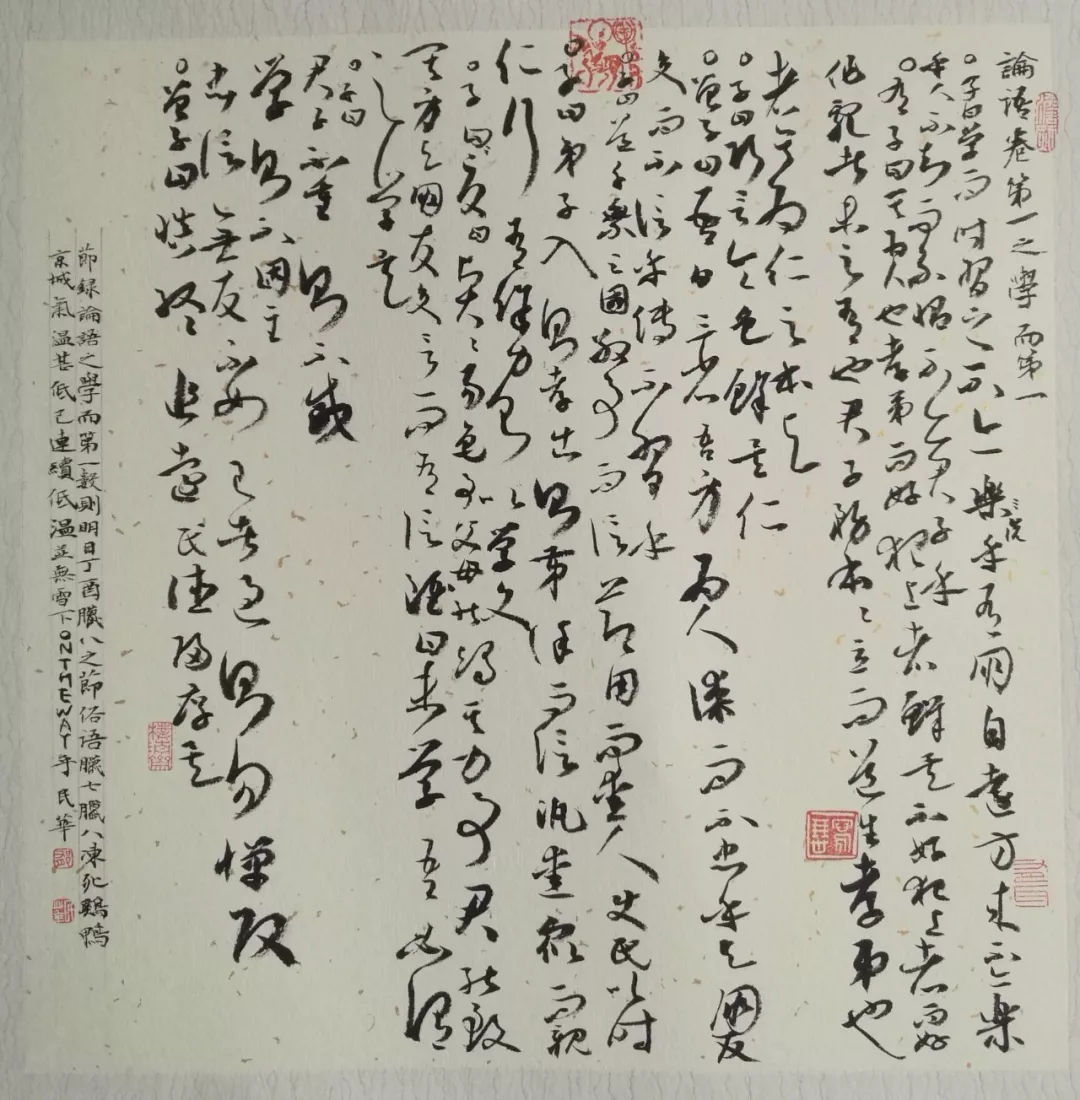 論語卷第一之學而第一
子曰學而時習之不亦樂乎有朋自遠方来不亦樂
三說
乎人不知而不慍不亦君子乎
有子曰其為人也孝弟而好犯上者鮮矣不好犯上者而好
作亂者未之有也君子務本本立而道生孝弟也
者其為仁之本与
子曰巧言令色鮮矣仁
曾子曰吾日三省吾身為人謀而不忠乎与朋友
交而不信乎傳不習乎
子曰道千乘之國敬事而信節用而愛人使民以时
子曰弟子入則孝出則弟谨而信汎愛衆而親
仁行有餘力則以学文
子夏曰賢賢易色事父母能竭其力事君能致
其身与朋友交言而有信雖曰未学吾必謂
之学矣
子曰
君子不重則不威
学則不固主
忠信無友不如己者过則勿憚改
曾子曰慎終追遠民德歸厚矣
節録論語之學而第一數則明日丁酉臘八之節俗语臘七臘八凍死鷄鴨
京城氣温甚低已連續低温並無雪下ONTHEWAY于民華